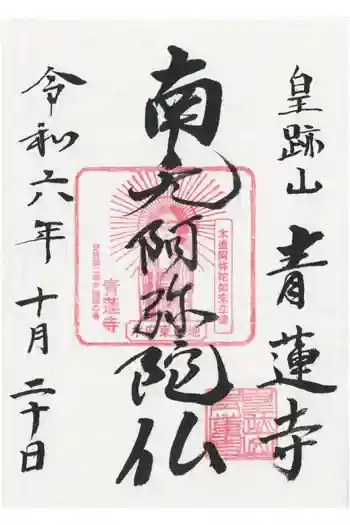 皇跡山 青蓮寺
南无阿弥陀仏
令和六年 十月 二十日
木造阿弥陀如来立像
青蓮寺